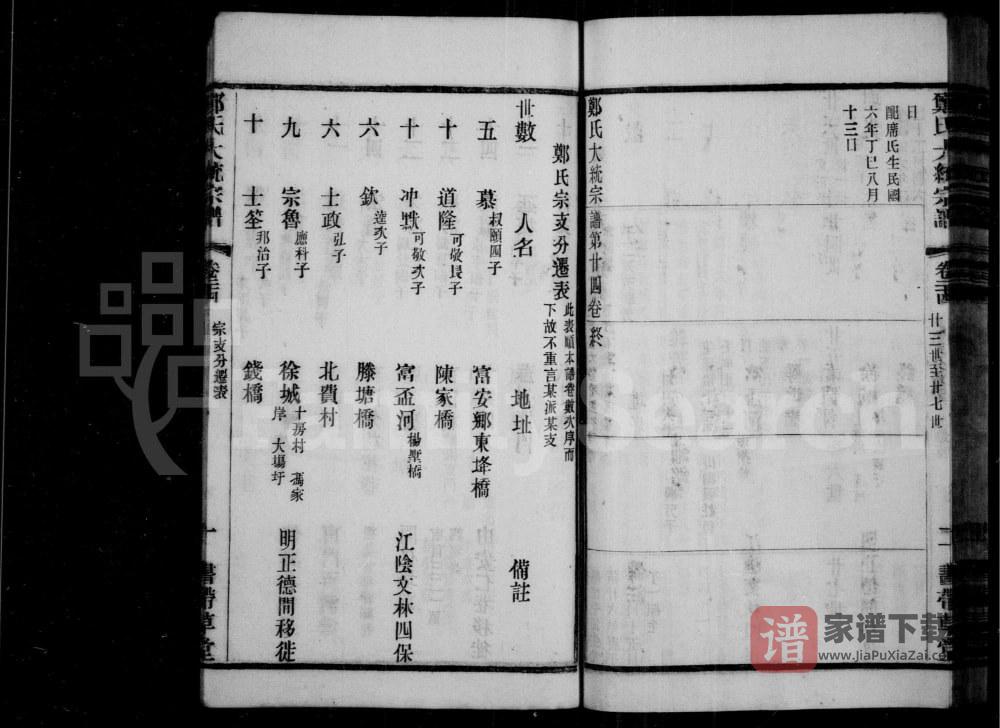 日
配席氏生民國
六年丁巳八月
十三日
鄭氏大統宗譜第廿四卷終
鄭氏大統宗譜
廿三世至廿七世
鄭氏宗支分遷表
此表順本譜卷數次序而
下故不重言某派某支
世數 人名 地址 備註
五 慕 叔頤四子 富安鄉東埄橋
十五 道隆 可敬長子 陳家橋
十三 冲默 可敬次子 富盃河 楊墅橋 江陰文林四保
六 欽 逵次子 滕塘橋
六 士政 弘子 北費村
九 宗魯 應科子 徐城 十房村 馮家
岸 大塲圩 明正德間移徙
十 士筌 邦治子 錢橋
鄭氏大統宗譜 卷之廿四 宗支分遷表 一 書帶草堂
家谱下载
www.JiaPuXiaZai.com
谱
FamilySearch